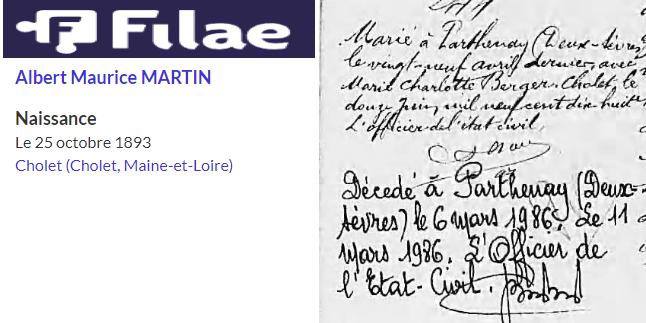 Filae
Albert Maurice MARTIN
Naissance
Le 25 octobre 1893
Cholet (Cholet, Maine-et-Loire)
Marié à Parthenay (Deux-Sèvres)
le vingt-neuf avril dernier, avec
Marie Charlotte Berger. Cholet, le
douze Juin, mil neuf cent dix-huit
L'officier de l'état civil,
Décedé à Parthenay (Deux-
Sèvres) le 6 mars 1986. Le 11
mars 1986. L'Officier de
l'Etat-Civil.